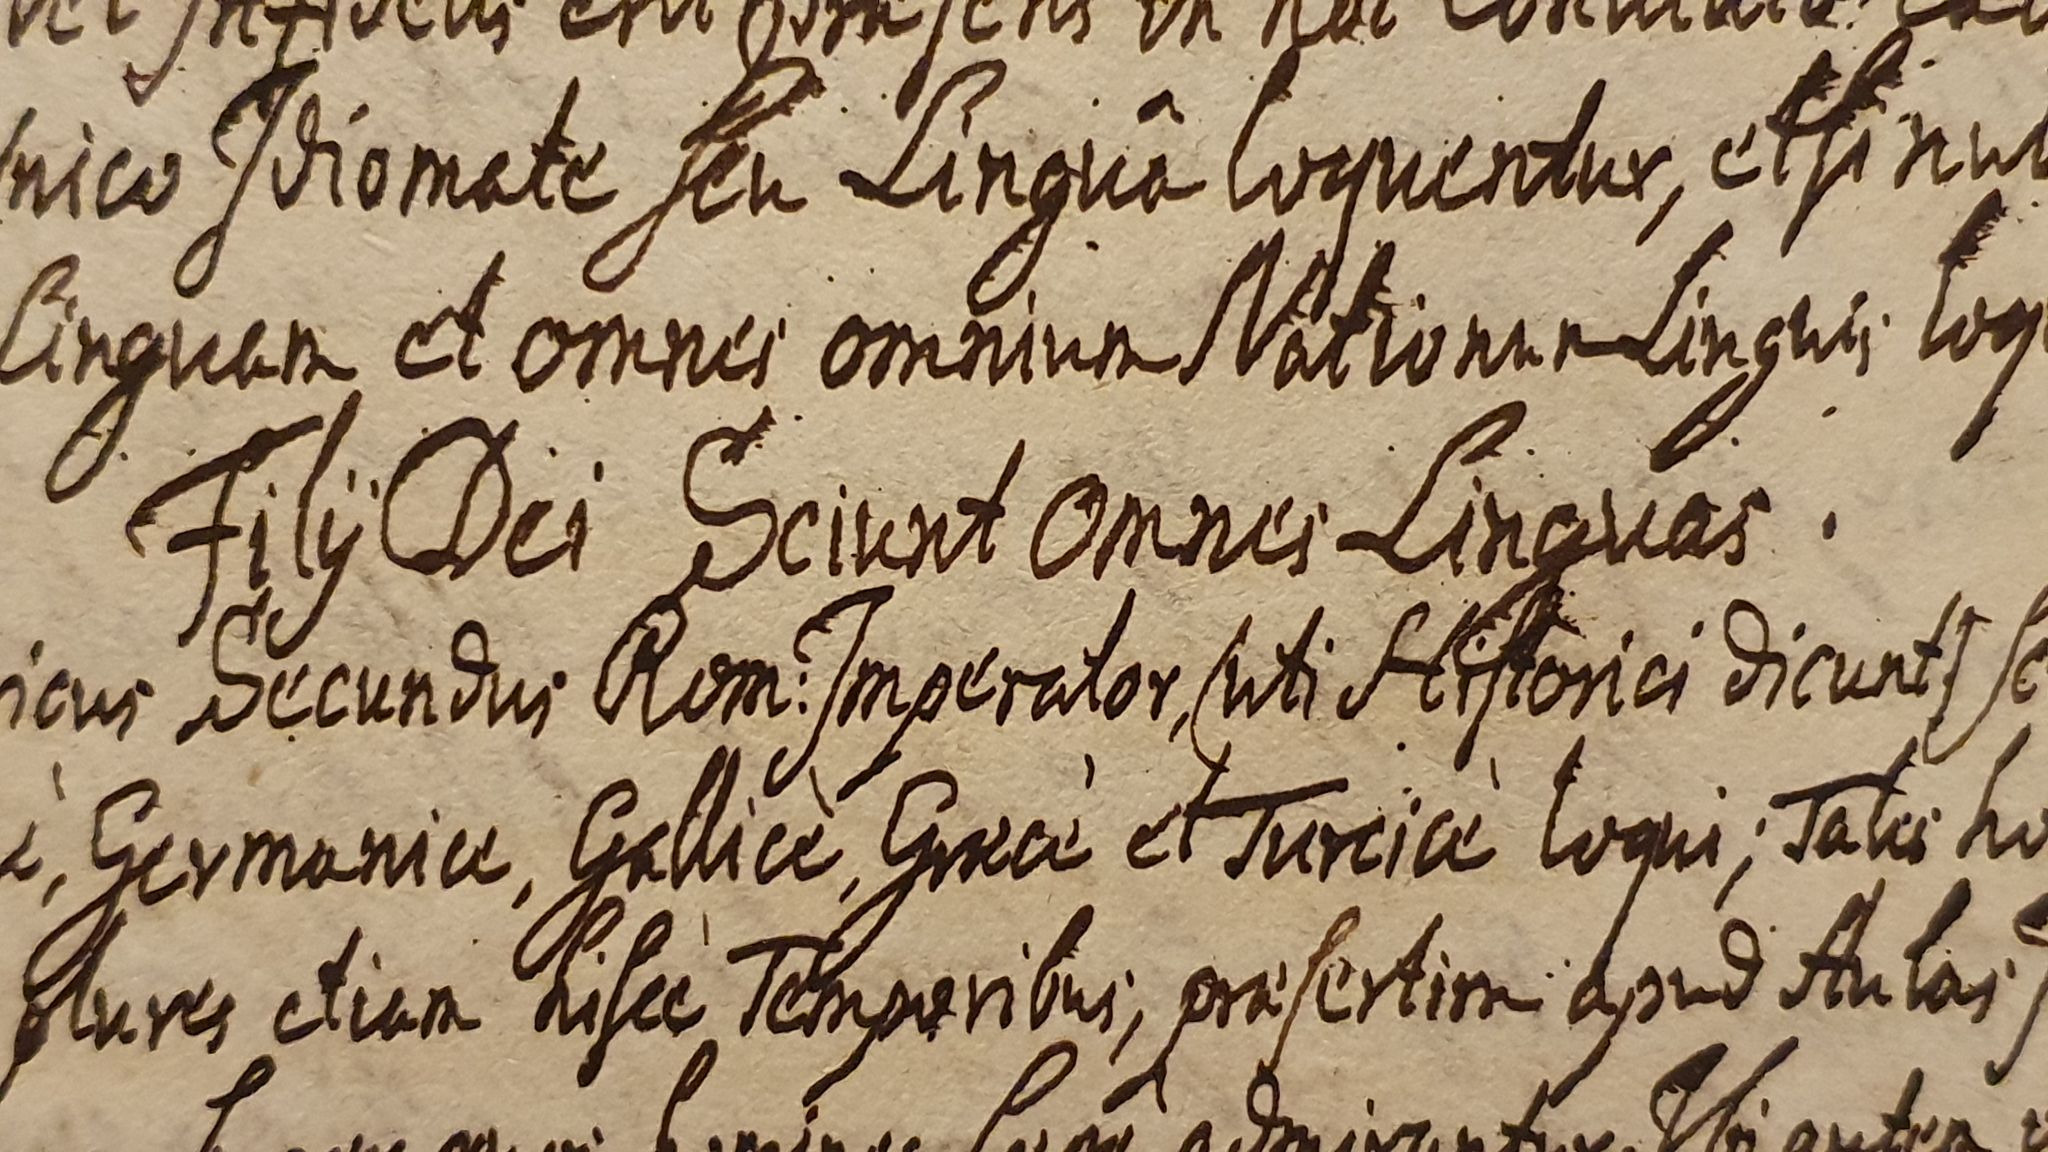 erit præsens in hoc
Idiomate seu Linguâ loquentur, etsi
Linguam et omnes omnium Nationum Linguis
Filÿ Dei Sciunt Omnes Linguas.
Secundus Rom: Imperator, (uti Historici dicunt)
Germanicè, Gallicè, Græcè et Turcicè loqui; Tales
plures etiam hiscè Temporibus, præsertim apud Aulas
admirantur. Ubi autem